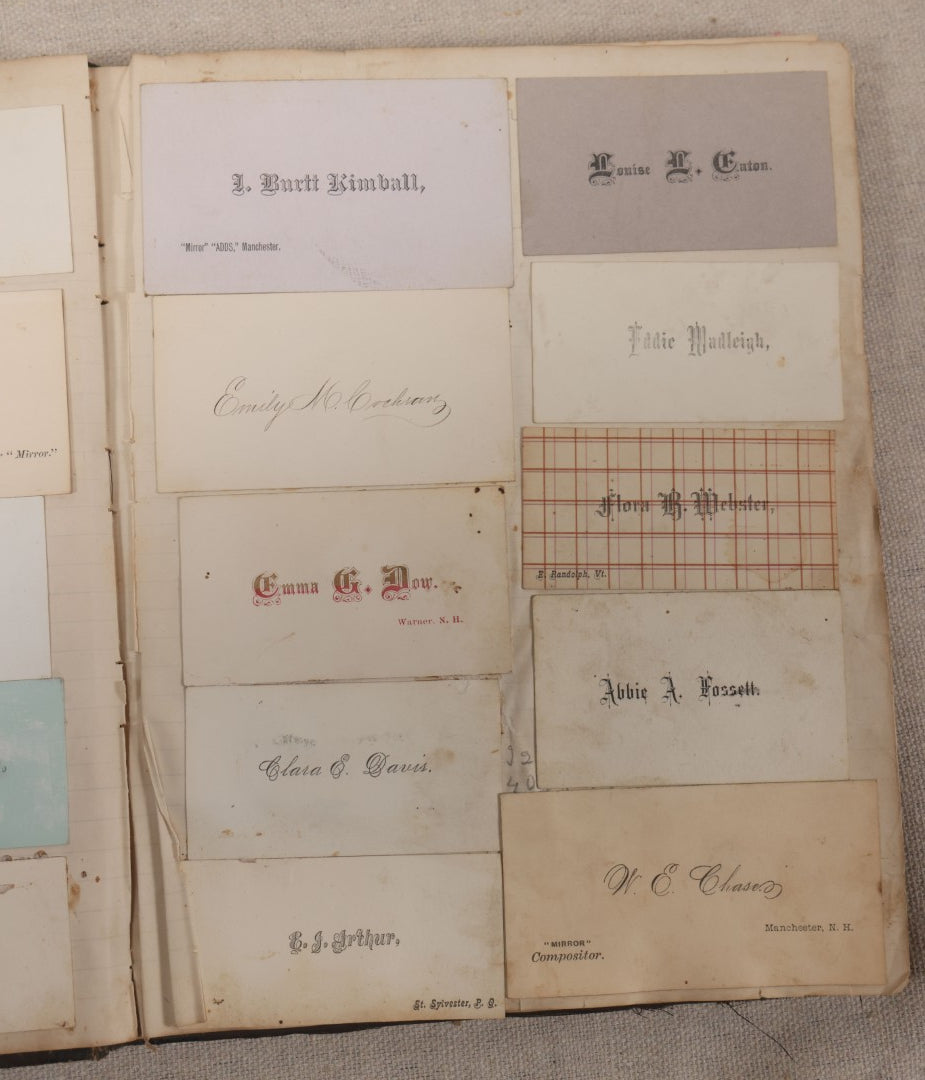 "Mirror."
I. Burtt Kimball,
"Mirror" "ADDS," Manchester.
Emily M. Cochran
Emma G. Dow.
Warner, N. H.
Clara E. Davis.
E. J. Arthur,
St. Sylvester, P. Q.
Louise L. Eaton.
Eddie Wadleigh,
Flora B. Webster,
E. Randolph, Vt.
Abbie A. Fossett.
32
40
W. E. Chase.
Manchester, N. H.
"MIRROR"
Compositor.